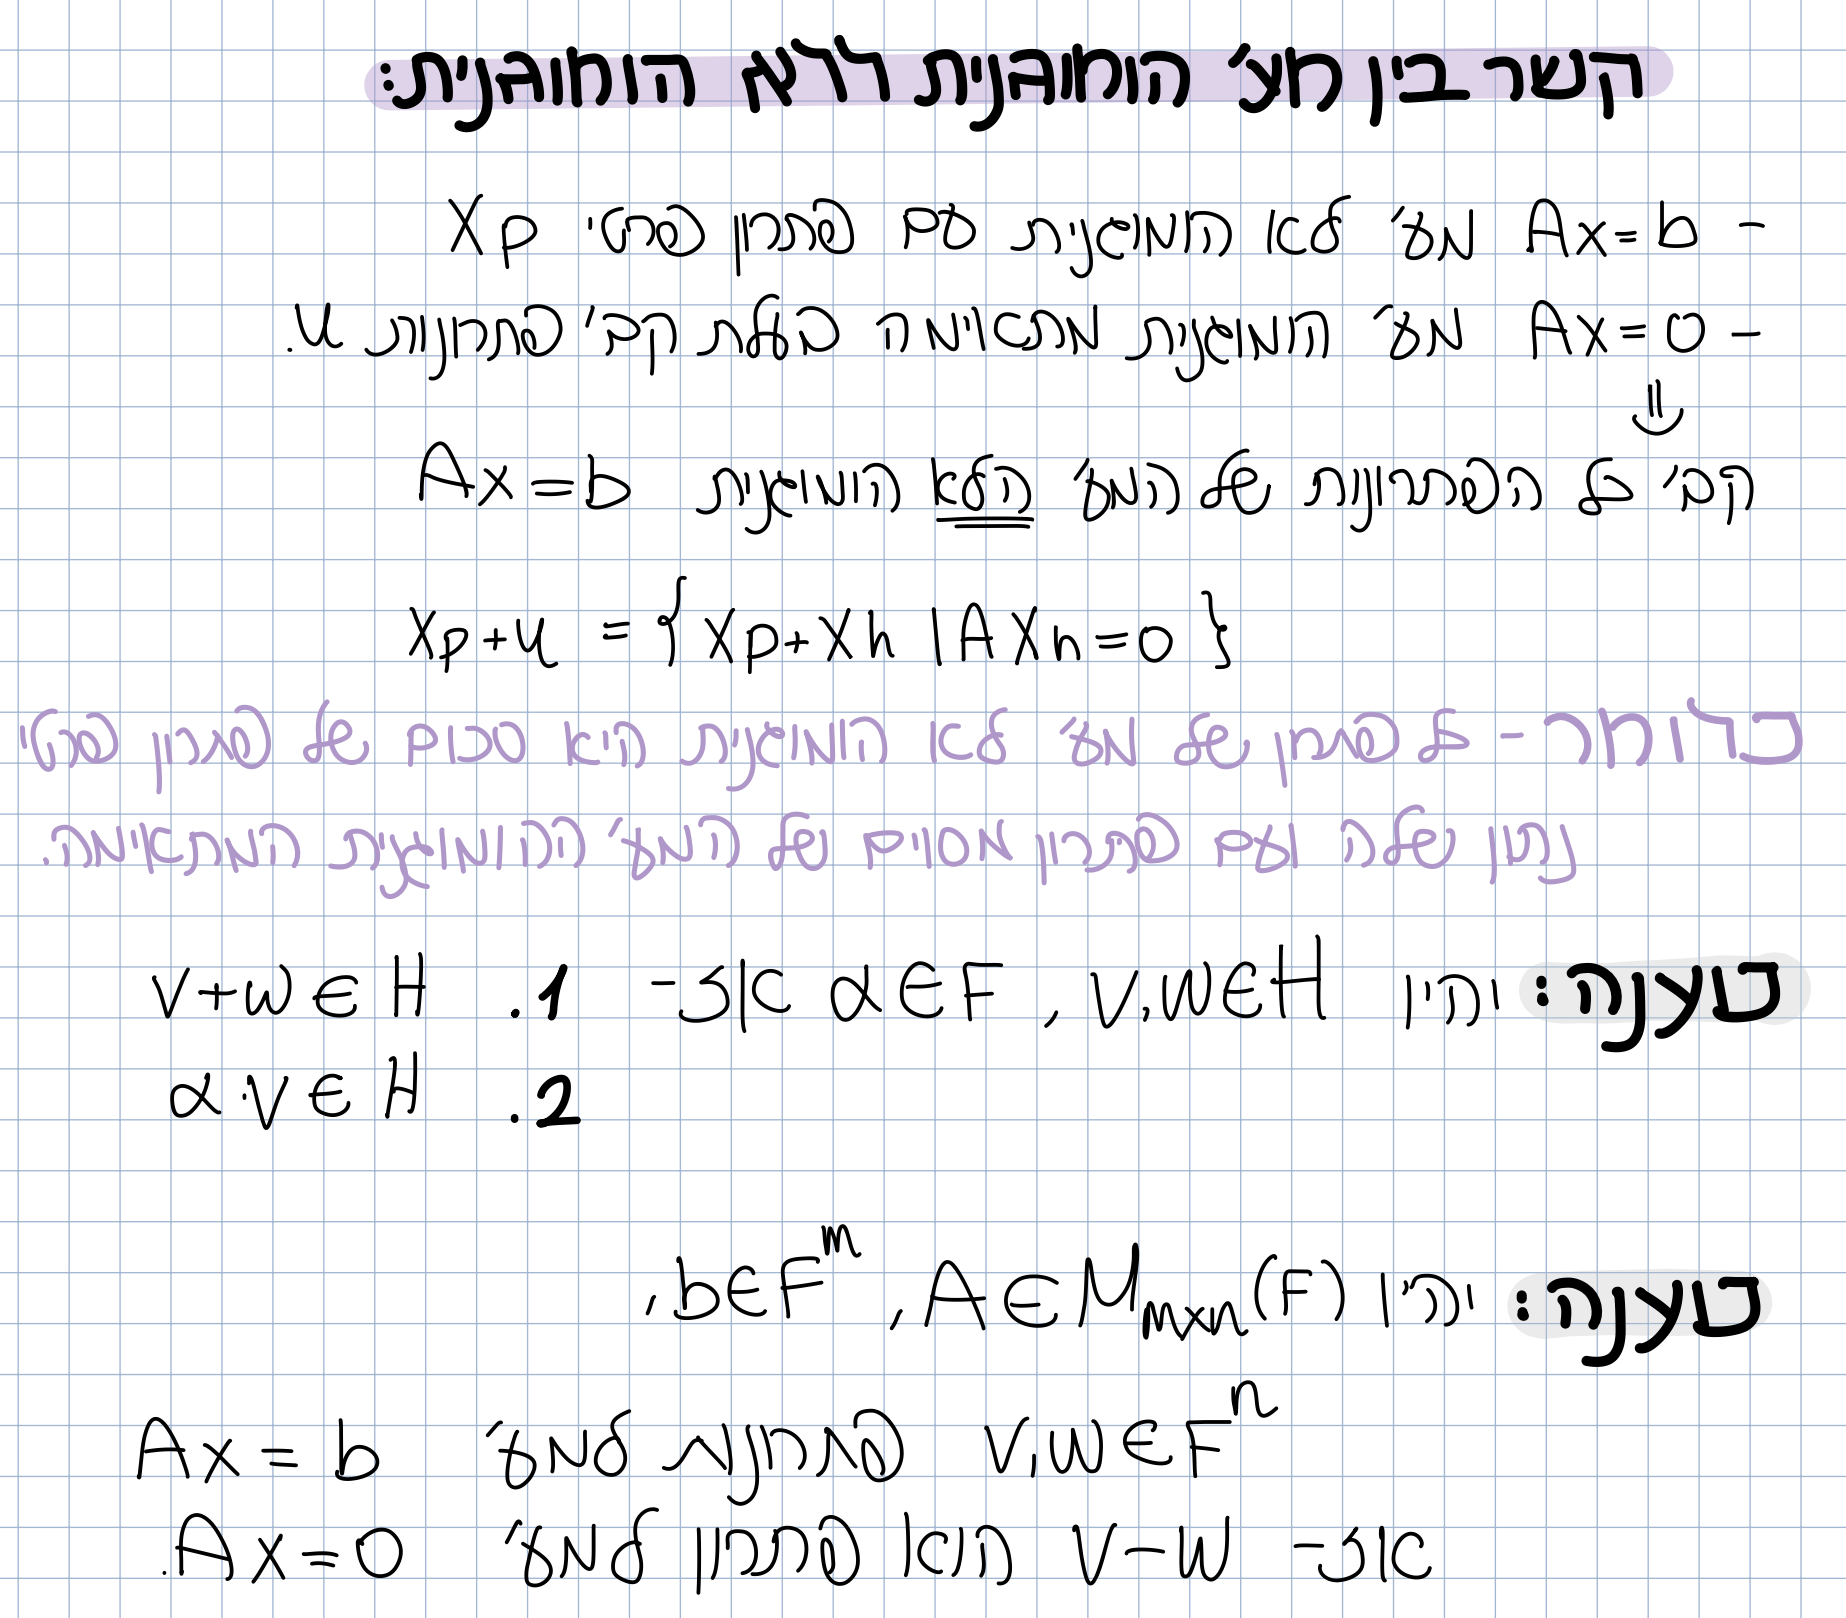 קשר בין מע׳ הומוגנית ללא הומוגנית:
- Ax=b מע׳ לא הומוגנית עם פתרון פרטי Xp
- Ax=0 מע׳ הומוגנית מתאימה בעלת קב׳ פתרונות U.
⇓
קב׳ כל הפתרונות של המע׳ הלא הומוגנית Ax=b
Xp+U = { Xp+Xh | AXh=0 }
כלומר - כל פתרון של מע׳ לא הומוגנית היא סכום של פתרון פרטי
נתון שלה ועם פתרון מסוים של המע׳ ההומוגנית המתאימה.
טענה: יהיו V,W∈H , α∈F אז- 1. V+W∈H
2. α·V∈H
טענה: יהיו A∈M_{m×n}(F) , b∈F^m,
V,W∈F^n פתרונות למע׳ Ax=b
אז- V-W הוא פתרון למע׳ Ax=0.